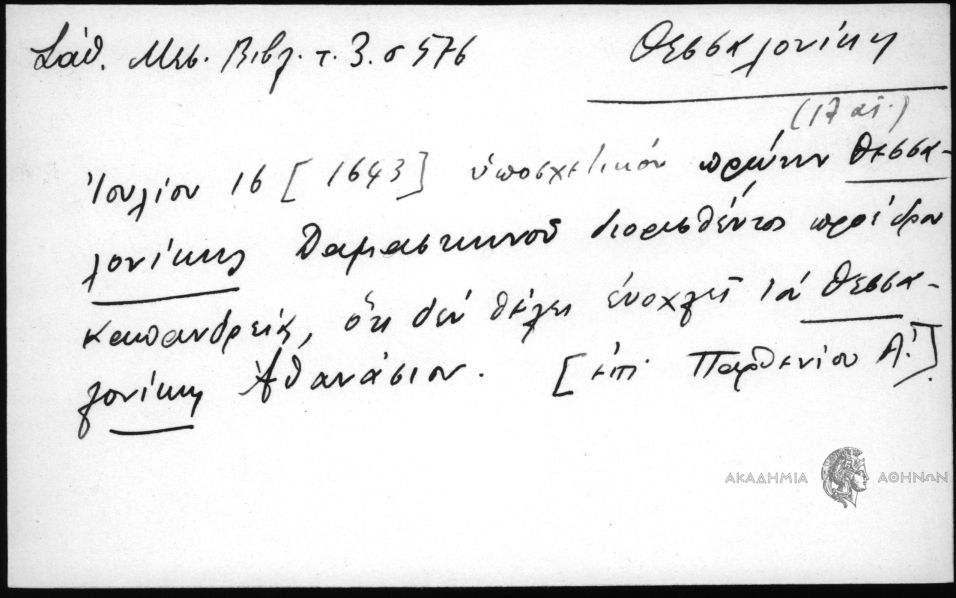 Σάθ. Μεσ. Βιβλ. τ. 3. σ 576
Θεσσαλονίκη
(17 αἰ.)
Ἰουλίου 16 [1643] ὑποσχετικόν πρώην Θεσσα-
λονίκης Δαμασκηνοῦ διορισθέντος προέδρου
Κασσανδρείας, ὅτι δέν θέλει ἐνοχλεῖ τόν Θεσσα-
λονίκης Ἀθανάσιον. [ἐπί Παρθενίου Α΄.]
ΑΚΑΔΗΜΙΑ ΑΘΗΝΩΝ